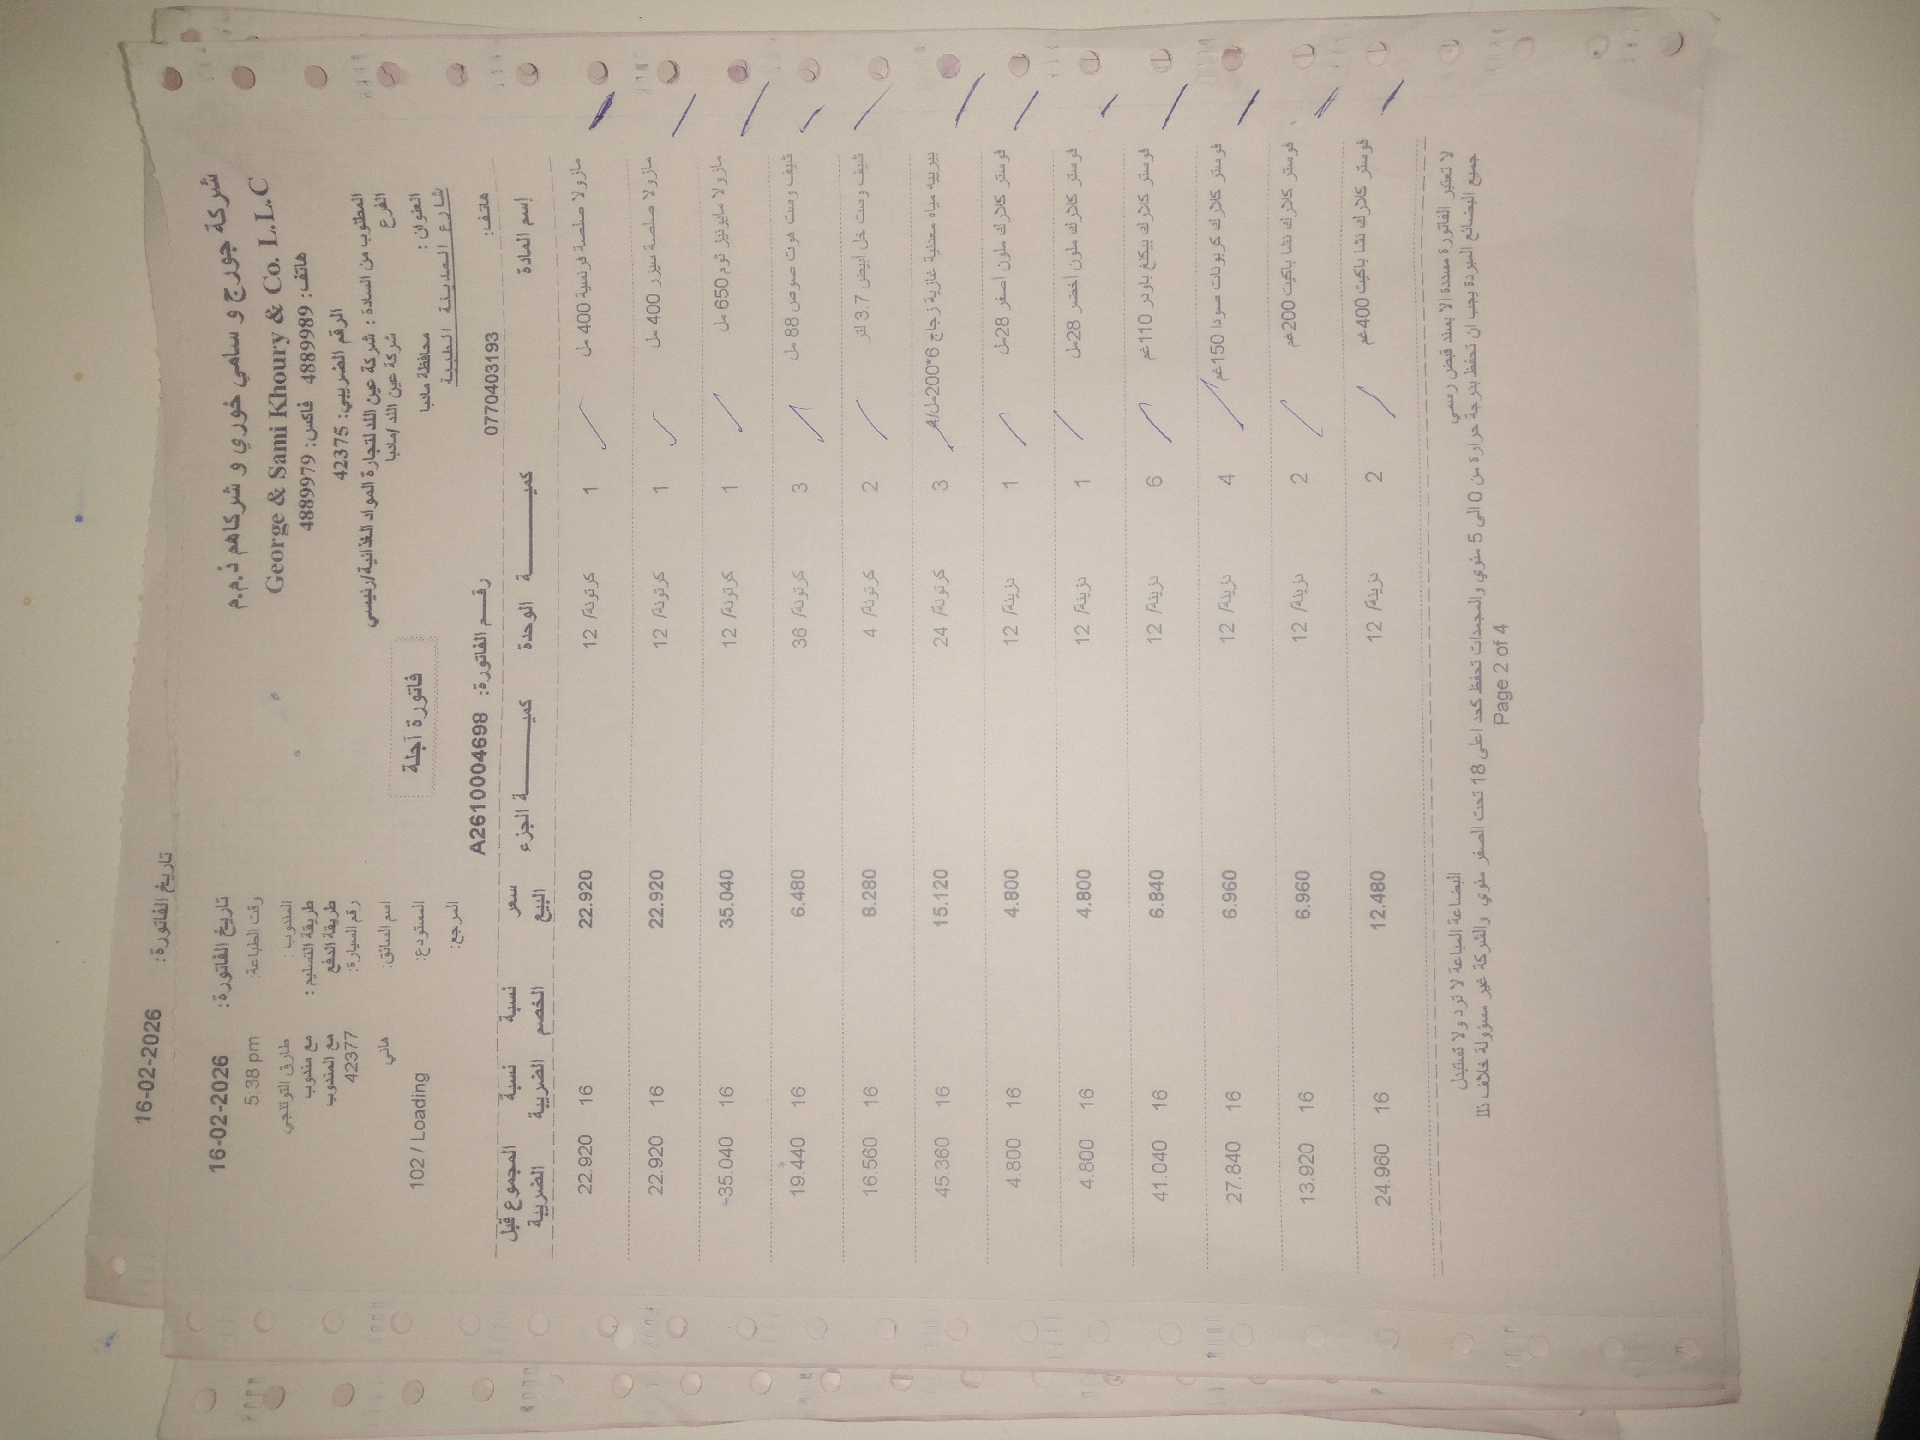 16-02-2026 تاريخ الفاتورة:
شركة جورج و سامي خوري و شركاهم ذ.م.م
George & Sami Khoury & Co. L.L.C
هاتف: 4889989 فاكس: 4889979
الرقم الضريبي: 42375
المطلوب من السادة : شركة عين اللد لتجارة المواد الغذائية/رئيسي
الفرع شركة عين اللد /مادبا
العنوان : محافظة مادبا
شارع المدينة الطبية
هاتف: 0770403193
تاريخ الفاتورة: 16-02-2026
وقت الطباعة: 5:38 pm
المندوب : طارق التوتنجي
طريقة التسليم : مع مندوب
طريقة الدفع مع المندوب
رقم السيارة: 42377
اسم السائق: هاني
المستودع: 102 / Loading
المرجع:
فاتورة آجلة
رقم الفاتورة: A2610004698
إسم المادة كمية الوحدة كمية الجزء سعر البيع نسبة الخصم نسبة الضريبة المجموع قبل الضريبة
مازولا صلصة فرنسية 400 مل 1 كرتونة/ 12 22.920 16 22.920
مازولا صلصة سيزر 400 مل 1 كرتونة/ 12 22.920 16 22.920
مازولا مايونيز ثوم 650 مل 1 كرتونة/ 12 35.040 16 35.040
شيف وست هوت صوص 88 مل 3 كرتونة/ 36 6.480 16 19.440
شيف وست خل ابيض 3.7 لتر 2 كرتونة/ 4 8.280 16 16.560
بيرييه مياه معدنية غازية زجاج 6*200مل/4 3 كرتونة/ 24 15.120 16 45.360
فوستر كلارك ملون اصفر 28مل 1 دزينة/ 12 4.800 16 4.800
فوستر كلارك ملون اخضر 28مل 1 دزينة/ 12 4.800 16 4.800
فوستر كلارك بيكنغ باودر 110غم 6 دزينة/ 12 6.840 16 41.040
فوستر كلارك كربونات صودا 150غم 4 دزينة/ 12 6.960 16 27.840
فوستر كلارك نشا باكيت 200غم 2 دزينة/ 12 6.960 16 13.920
فوستر كلارك نشا باكيت 400غم 2 دزينة/ 12 12.480 16 24.960
لا تعتبر الفاتورة مسددة الا بسند قبض رسمي البضاعة المباعة لا ترد ولا تستبدل
جميع البضائع المبردة يجب ان تحفظ بدرجة حرارة من 0 الى 5 مئوي والمجمدات تحفظ كحد اعلى 18 تحت الصفر مئوي والشركة غير مسؤولة خلاف ذلك
Page 2 of 4